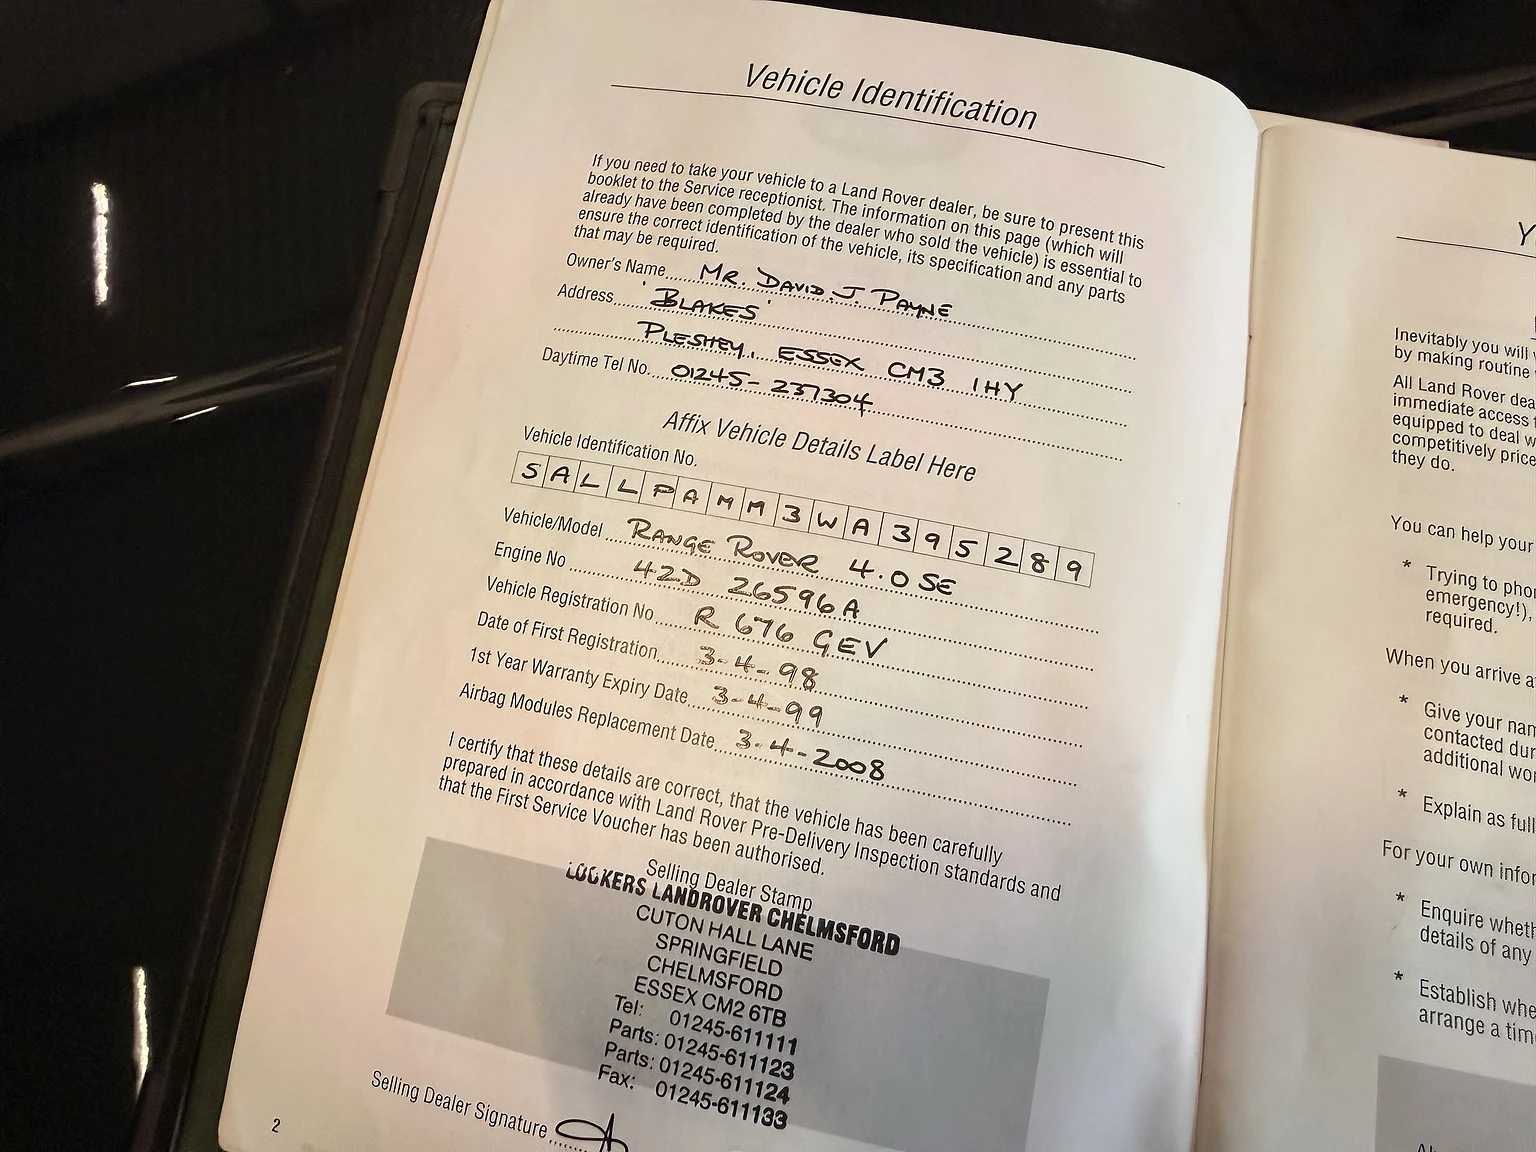 Vehicle Identification
If you need to take your vehicle to a Land Rover dealer, be sure to present this
booklet to the Service receptionist. The information on this page (which will
already have been completed by the dealer who sold the vehicle) is essential to
ensure the correct identification of the vehicle, its specification and any parts
that may be required.
Owner's Name MR. DAVID. J. PAYNE
Address 'BLAKES'
PLESHEY, ESSEX CM3 1HY
Daytime Tel No. 01245-237304
Affix Vehicle Details Label Here
Vehicle Identification No.
SALLPAMM3WA395289
Vehicle/Model RANGE ROVER 4.0 SE
Engine No 42D 26596A
Vehicle Registration No. R 676 GEV
Date of First Registration 3-4-98
1st Year Warranty Expiry Date 3-4-99
Airbag Modules Replacement Date 3-4-2008
I certify that these details are correct, that the vehicle has been carefully
prepared in accordance with Land Rover Pre-Delivery Inspection standards and
that the First Service Voucher has been authorised.
Selling Dealer Stamp
LOOKERS LANDROVER CHELMSFORD
CUTON HALL LANE
SPRINGFIELD
CHELMSFORD
ESSEX CM2 6TB
Tel: 01245-611111
Parts: 01245-611123
Parts: 01245-611124
Fax: 01245-611133
Selling Dealer Signature
2
Inevitably you will
by making routine
All Land Rover
immediate access
equipped to deal
competitively
they do.
You can help your
* Trying to
emergency!),
required.
When you arrive
* Give your
contacted
additional
* Explain as
For your own
* Enquire
details of any
* Establish
arrange a